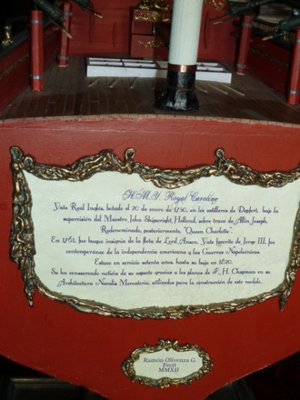 H.M.Y. Royal Caroline
Yate Real Inglés, botado el 20 de enero de 1750, en los astilleros de Depford, bajo la
supervisión del Maestro John Shipwright Holland, sobre trazo de Allin Joseph.
Redenominada, posteriormente, "Queen Charlotte".
En 1761, fue buque insignia de la flota de Lord Anson. Yate favorito de Jorge III, fue
contemporáneo de la independencia americana y las Guerras Napoleónicas.
Estuvo en servicio setenta años, hasta su baja en 1820.
Se ha conservado noticia de su aspecto gracias a los planos de F. H. Chapman en su
Architectura Navalis Mercatoria, utilizados para la construcción de este modelo.
Ramón Olivenza G.
Fecit
MMXII